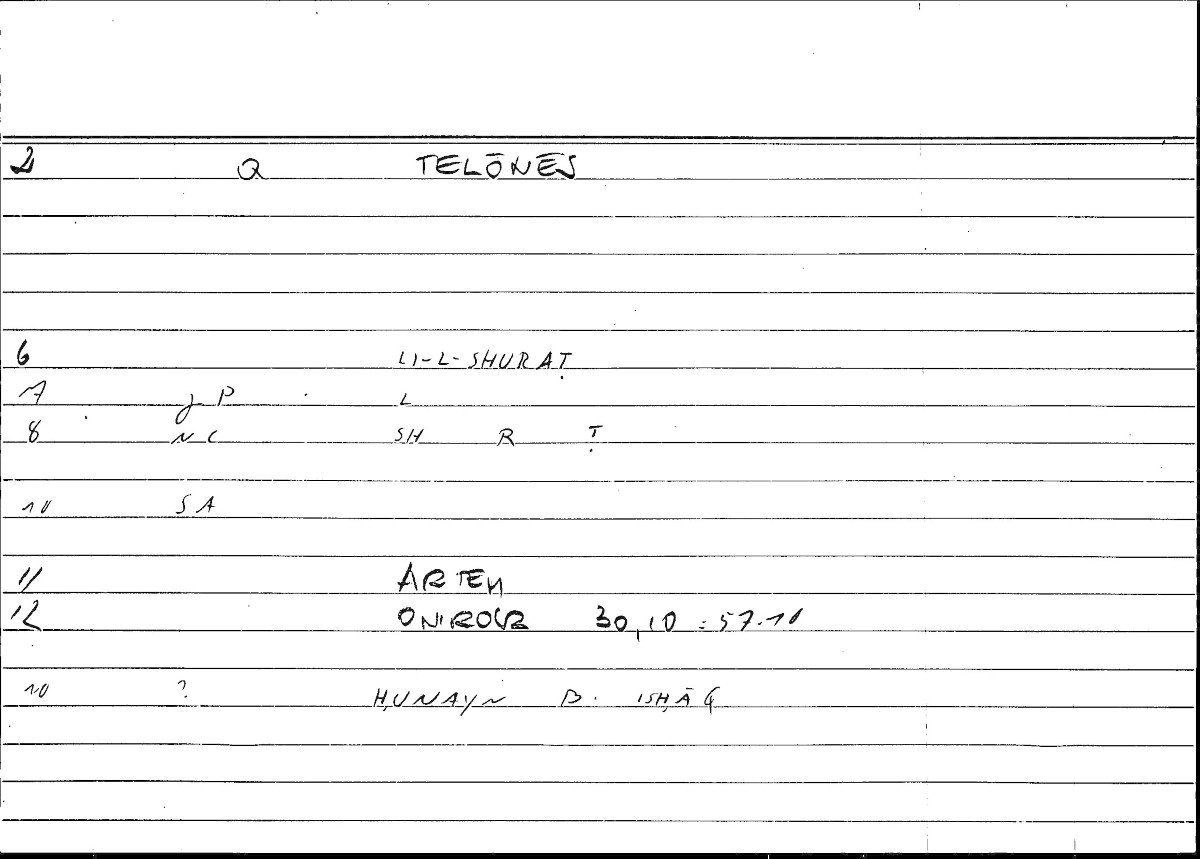 2 Q TELŌNĒS
6 LI-L-SHURAṬ
7 J P L
8 NC SH R Ṭ
10 SA
11 ARTEM
12 ONIROCR 30,10 : 57.10
10 ? ḤUNAYN B. ISḤĀQ